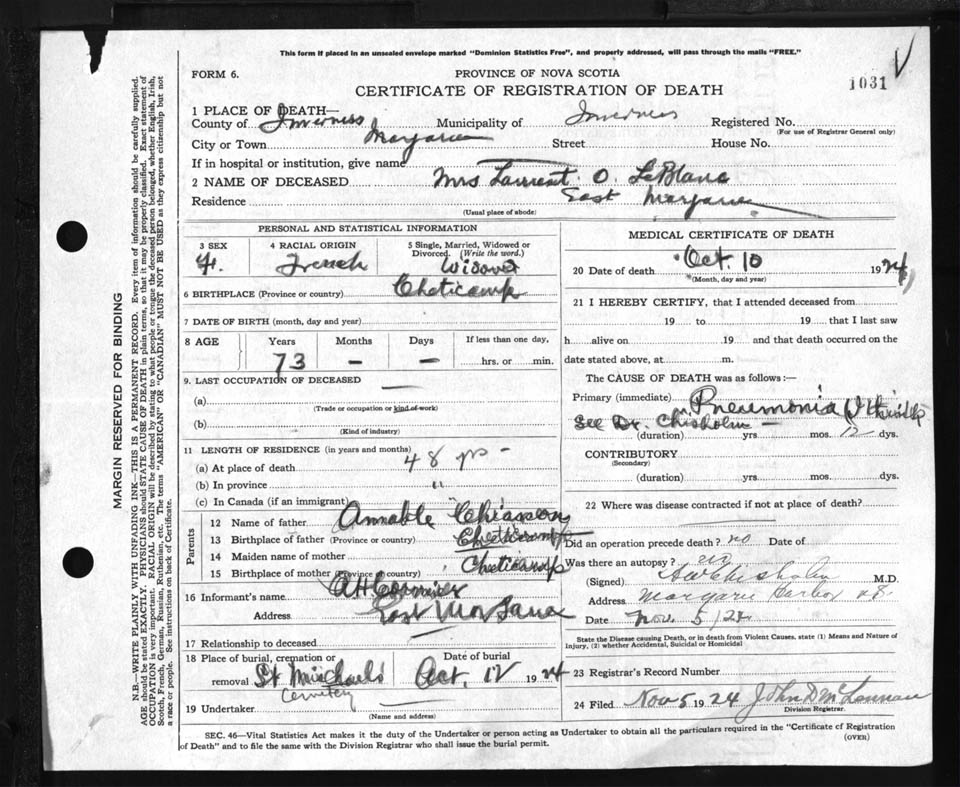 This form if placed in an unsealed envelope marked "Dominion Statistics Free", and properly addressed, will pass through the mails "FREE."
FORM 6.
PROVINCE OF NOVA SCOTIA
1031 V
CERTIFICATE OF REGISTRATION OF DEATH
1 PLACE OF DEATH—
County of Inverness Municipality of Inverness Registered No.
(For use of Registrar General only)
City or Town Margaree Street House No.
If in hospital or institution, give name
2 NAME OF DECEASED Mrs Laurent O. LeBlanc
Residence East Margaree
(Usual place of abode)
PERSONAL AND STATISTICAL INFORMATION
3 SEX 4 RACIAL ORIGIN 5 Single, Married, Widowed or Divorced. (Write the word.)
F. French Widowed
6 BIRTHPLACE (Province or country) Cheticamp
7 DATE OF BIRTH (month, day and year)
8 AGE Years Months Days If less than one day,
73 — — hrs. or min.
9. LAST OCCUPATION OF DECEASED —
(a)
(Trade or occupation or kind of work)
(b)
(Kind of industry)
11 LENGTH OF RESIDENCE (in years and months)
(a) At place of death 48 yrs -
(b) In province "
(c) In Canada (if an immigrant)
Parents
12 Name of father Annable Chiasson
13 Birthplace of father (Province or country) Cheticamp
14 Maiden name of mother
15 Birthplace of mother (Province or country) Cheticamp
16 Informant's name A H Cormier
Address East Margaree
17 Relationship to deceased
18 Place of burial, cremation or removal St Michaels Cemetery
Date of burial Oct. 12 1924
19 Undertaker
(Name and address)
MEDICAL CERTIFICATE OF DEATH
20 Date of death Oct. 10 1924
(Month, day and year)
21 I HEREBY CERTIFY, that I attended deceased from
19 to 19 that I last saw
h alive on 19 and that death occurred on the
date stated above, at m.
The CAUSE OF DEATH was as follows:—
Primary (immediate) Pneumonia
See Dr. Chisholm —
(duration) yrs. mos. 12 dys.
CONTRIBUTORY
(Secondary)
(duration) yrs. mos. dys.
22 Where was disease contracted if not at place of death?
Did an operation precede death? no Date of
Was there an autopsy? no
(Signed) A W Chisholm M.D.
Address Margaree Harbor N.S.
Date Nov. 5/24
State the Disease causing Death, or in death from Violent Causes, state (1) Means and Nature of Injury, (2) whether Accidental, Suicidal or Homicidal
23 Registrar's Record Number
24 Filed Nov 5 1924 John D McLennan
Division Registrar.
SEC. 46—Vital Statistics Act makes it the duty of the Undertaker or person acting as Undertaker to obtain all the particulars required in the "Certificate of Registration
of Death" and to file the same with the Division Registrar who shall issue the burial permit. (OVER)
MARGIN RESERVED FOR BINDING
N.B.—WRITE PLAINLY WITH UNFADING INK—THIS IS A PERMANENT RECORD. Every item of information should be carefully supplied.
AGE should be stated EXACTLY. PHYSICIANS should STATE CAUSE OF DEATH in plain terms, so that it may be properly classified. Exact statement of
OCCUPATION is very important. RACIAL ORIGIN will be described by stating to what people or tongue the deceased person belonged, whether English, Irish,
Scotch, French, German, Russian, Ruthenian, etc. The terms "AMERICAN" or "CANADIAN" MUST NOT BE USED as they express citizenship but not
a race or people. See instructions on back of Certificate.